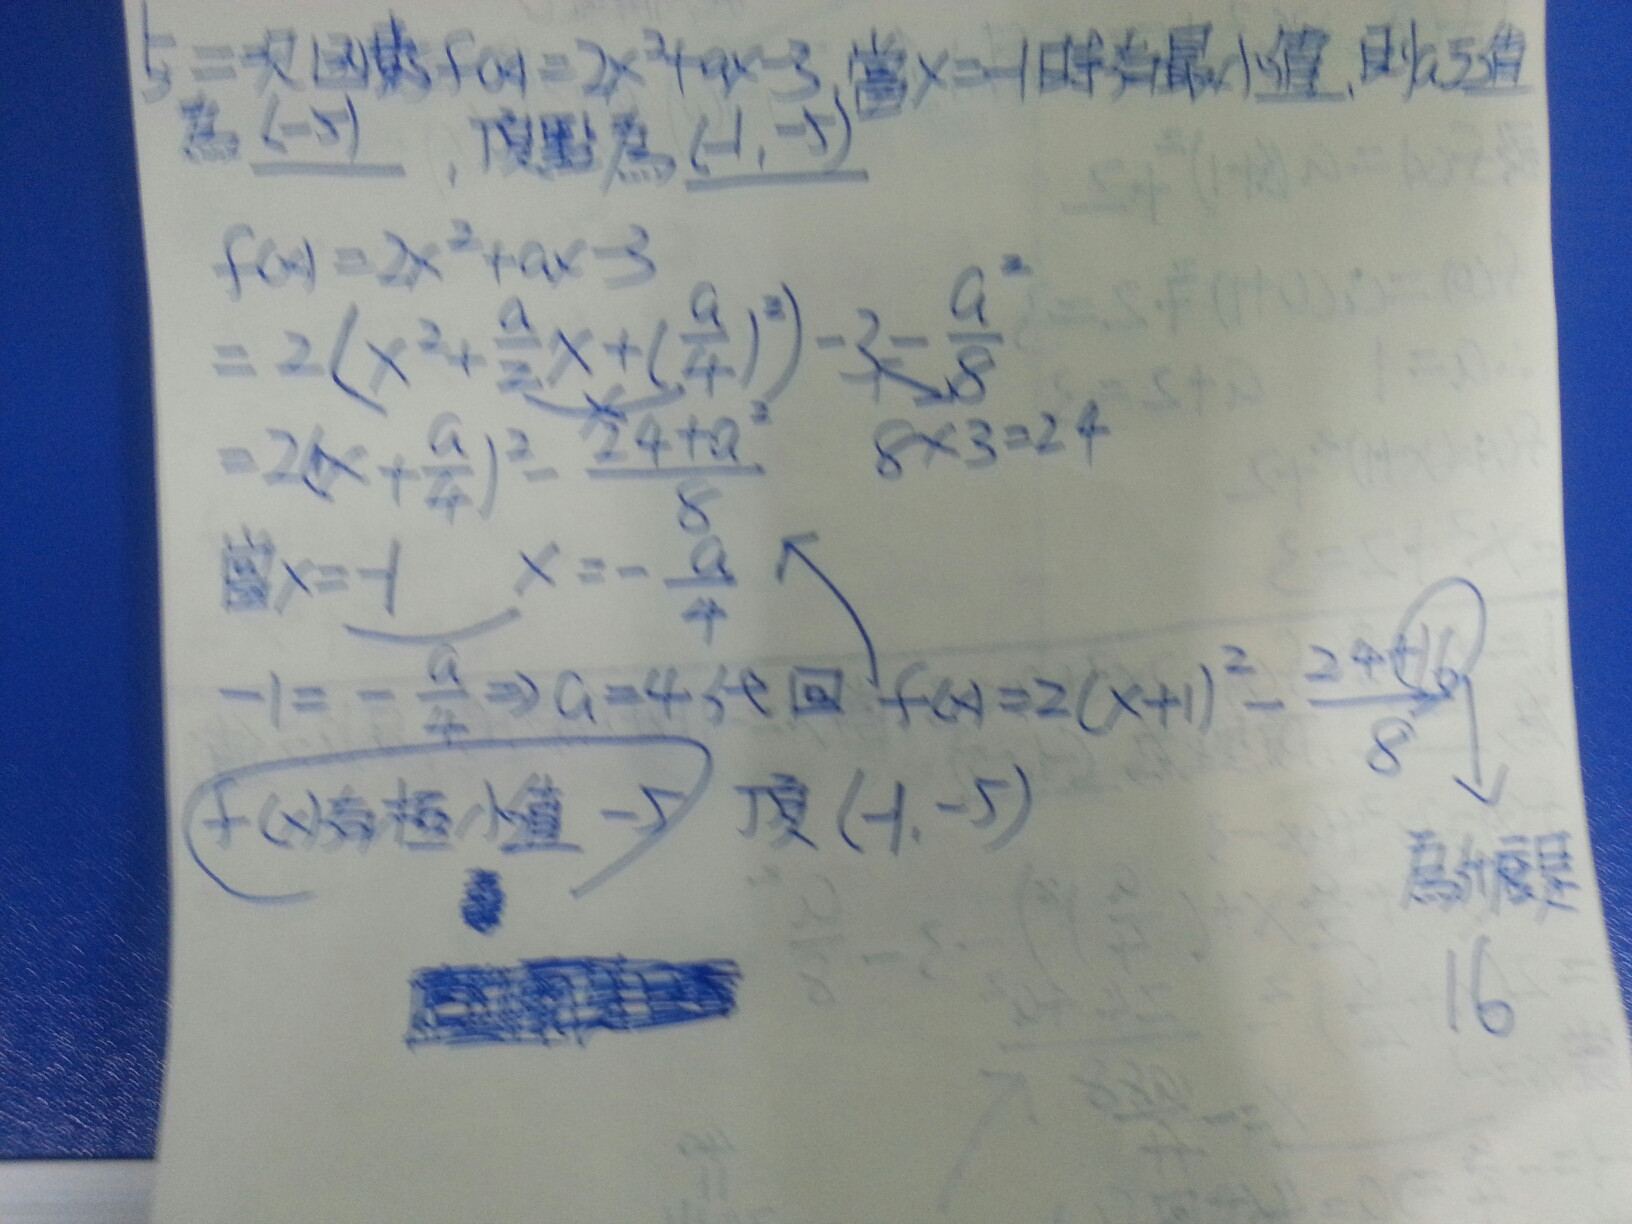 5 二次函數 f(x)=2x²+ax-3,當x=-1時有最小值,則a之值
為(-5),頂點為(-1,-5)
f(x)=2x²+ax-3
=2(x²+a/2x+(a/4)²)-3-a²/8
8×3=24
=2(x+a/4)²-24+a²/8
當x=-1 x=-a/4
-1=-a/4⇒a=4代回 f(x)=2(x+1)²-24+16/8
f(x)有極小值-5 頂(-1,-5)
為什麼是
16